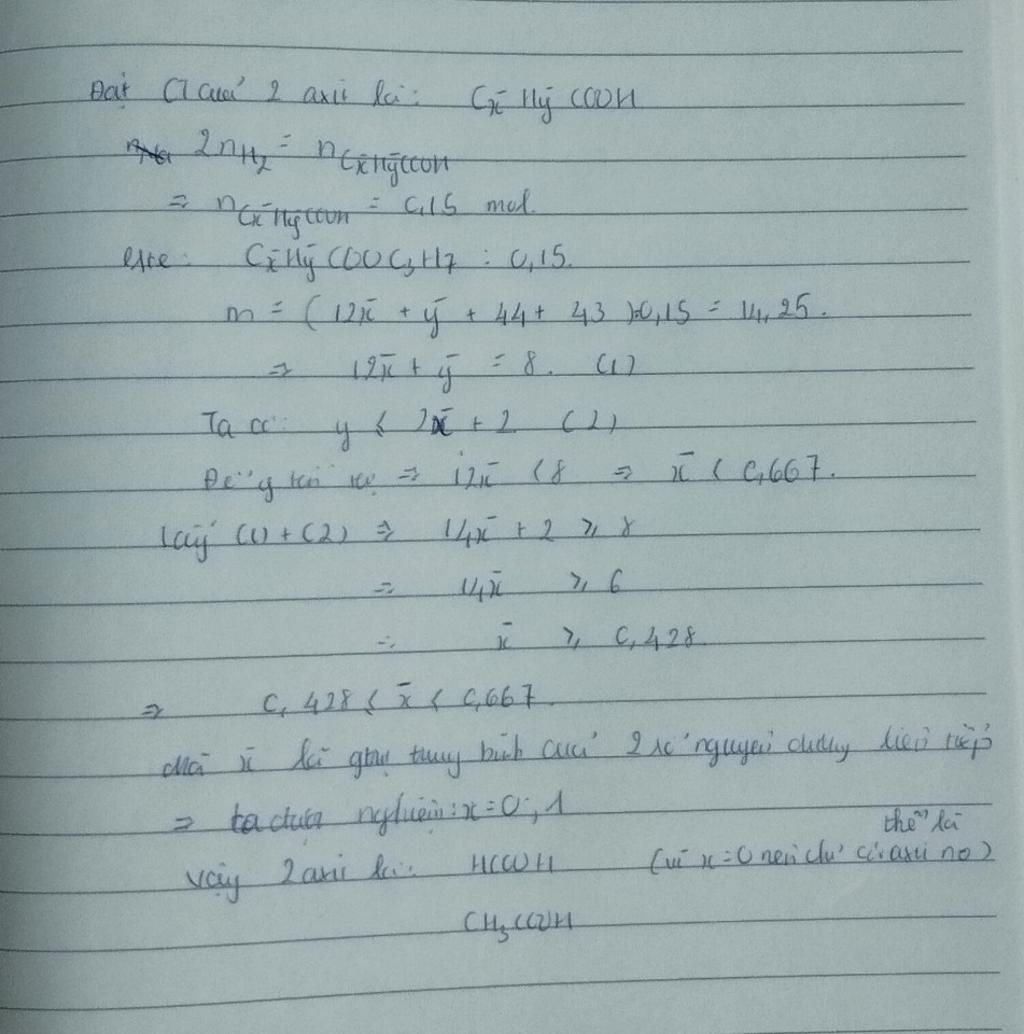 Đặt CT của 2 axit là: Cx̄Hȳ COOH
2nH₂ = nCx̄HȳCOOH
⇒ nCx̄HȳCOOH = 0,15 mol.
Este: Cx̄Hȳ COO C₃H7 : 0,15.
m = (12x̄ + ȳ + 44 + 43).0,15 = 14,25.
⇒ 12x̄ + ȳ = 8. (1)
Ta có: y ≤ 2x̄ + 2 (2)
Để ý ⇒ 12x̄ < 8 ⇒ x̄ < 0,667.
Lấy (1) + (2) ⇒ 14x̄ + 2 ≥ 8
⇒ 14x̄ ≥ 6
⇒ x̄ ≥ 0,428
⇒ 0,428 ≤ x̄ < 0,667.
Mà x̄ là trung bình của 2 số nguyên dương liên tiếp
⇒ ta được nghiệm: x = 0; 1
Vậy 2 axit là: HCOOH (vì x = 0 nên chỉ có thể là axit no)
CH₃COOH